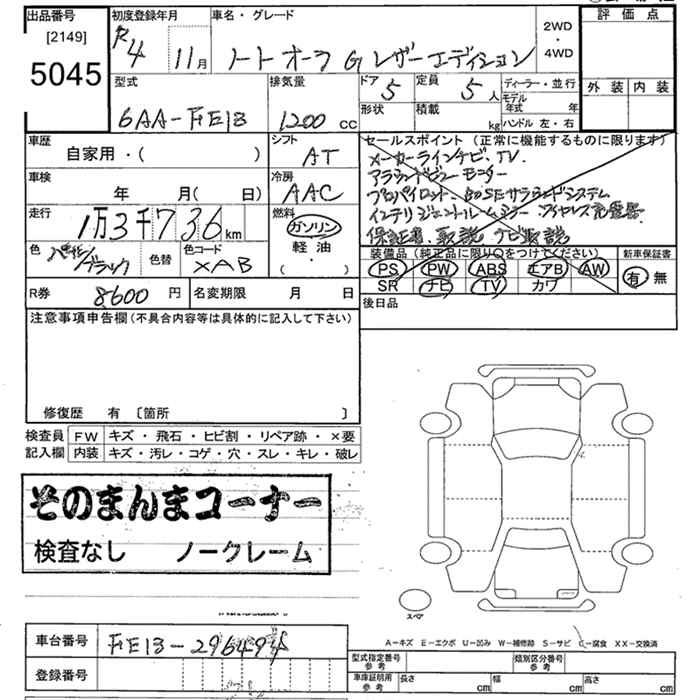 出品番号
[2149]
5045
初度登録年月
R4 11月
車名・グレード
ノートオーラ G レザーエディション
2WD
・
4WD
評価点
外装 内装
型式
6AA-FE13
排気量
1200 CC
ドア 5
定員 5人
ディーラー・並行
モデル
年式 年
形状
積載 kg
ハンドル 左・右
車歴
自家用・( )
シフト
AT
セールスポイント (正常に機能するものに限ります)
メーカーラインナビ、TV、
アラウンドビューモニター
プロパイロット、BOSEサラウンドシステム
インテリジェントルームミラー ワイヤレス充電器
保証書、取説 ナビ取説
車検
年 月( 日)
冷房
AAC
走行
1万3千736km
燃料
ガソリン
軽油
( ・ )
色
ブラック
色替
色コード
XAB
装備品(純正品に限り○をつけてください)
新車保証書
PS PW ABS エアB AW
有 無
SR ナビ TV カワ
R券 8600円
名変期限 月 日
後日品
注意事項申告欄(不具合内容等は具体的に記入して下さい)
修復歴 有 〔箇所 〕
検査員 FW キズ・飛石・ヒビ割・リペア跡・×要
記入欄 内装 キズ・汚レ・コゲ・穴・スレ・キレ・破レ
そのまんまコーナー
検査なし ノークレーム
スペア
A-キズ E-エクボ U-凹み W-補修跡 S-サビ C-腐食 XX-交換済
車台番号 FE13-296494
登録番号
型式指定番号
参考
類別区分番号
参考
車庫証明用
参考
長さ cm
幅 cm
高さ cm